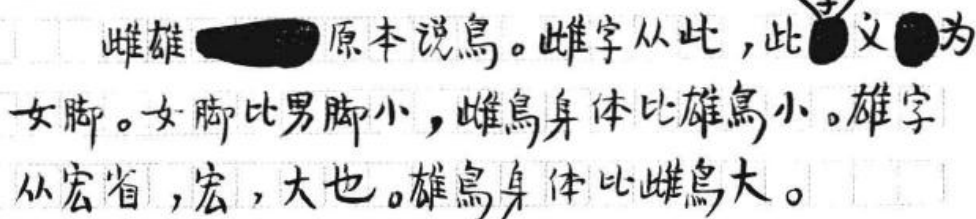 雌雄原本说鳥。雌字从此，此字义为
女脚。女脚比男脚小，雌鳥身体比雄鳥小。雄字
从宏省，宏，大也。雄鳥身体比雌鳥大。